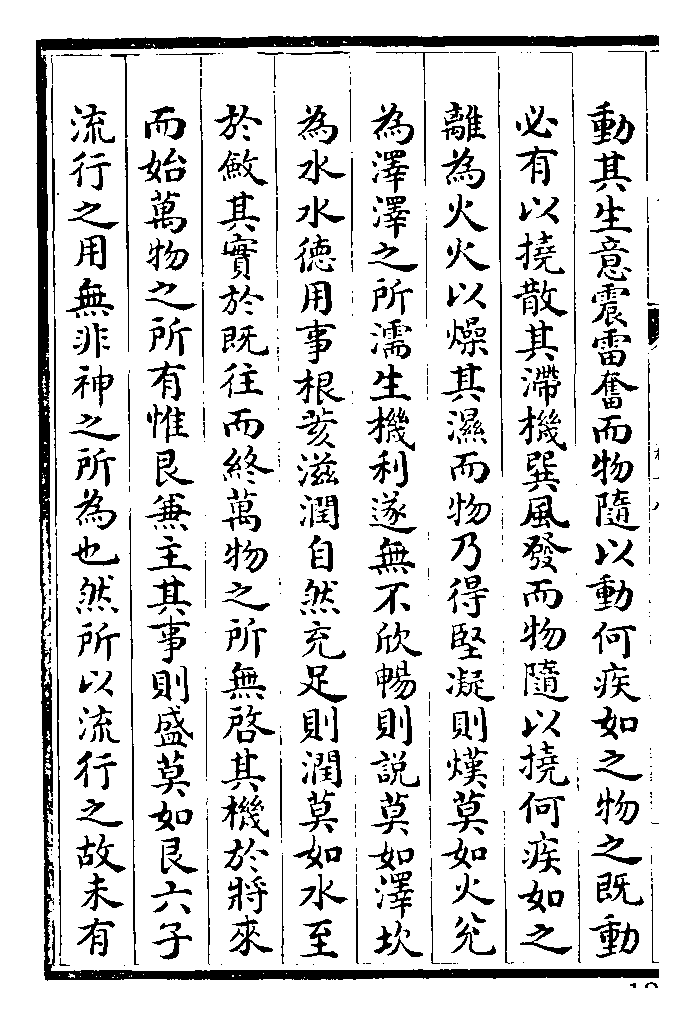 動其生意震雷奮而物隨以動何疾如之物之既動
必有以撓散其滯機巽風發而物隨以撓何疾如之
離為火火以燥其濕而物乃得堅凝則熯莫如火兊
為澤澤之所濡生機利遂無不欣暢則説莫如澤坎
為水水德用事根荄滋潤自然充足則潤莫如水至
於斂其實於既往而終萬物之所無啓其機於將來
而始萬物之所有惟艮兼主其事則盛莫如艮六子
流行之用無非神之所為也然所以流行之故未有